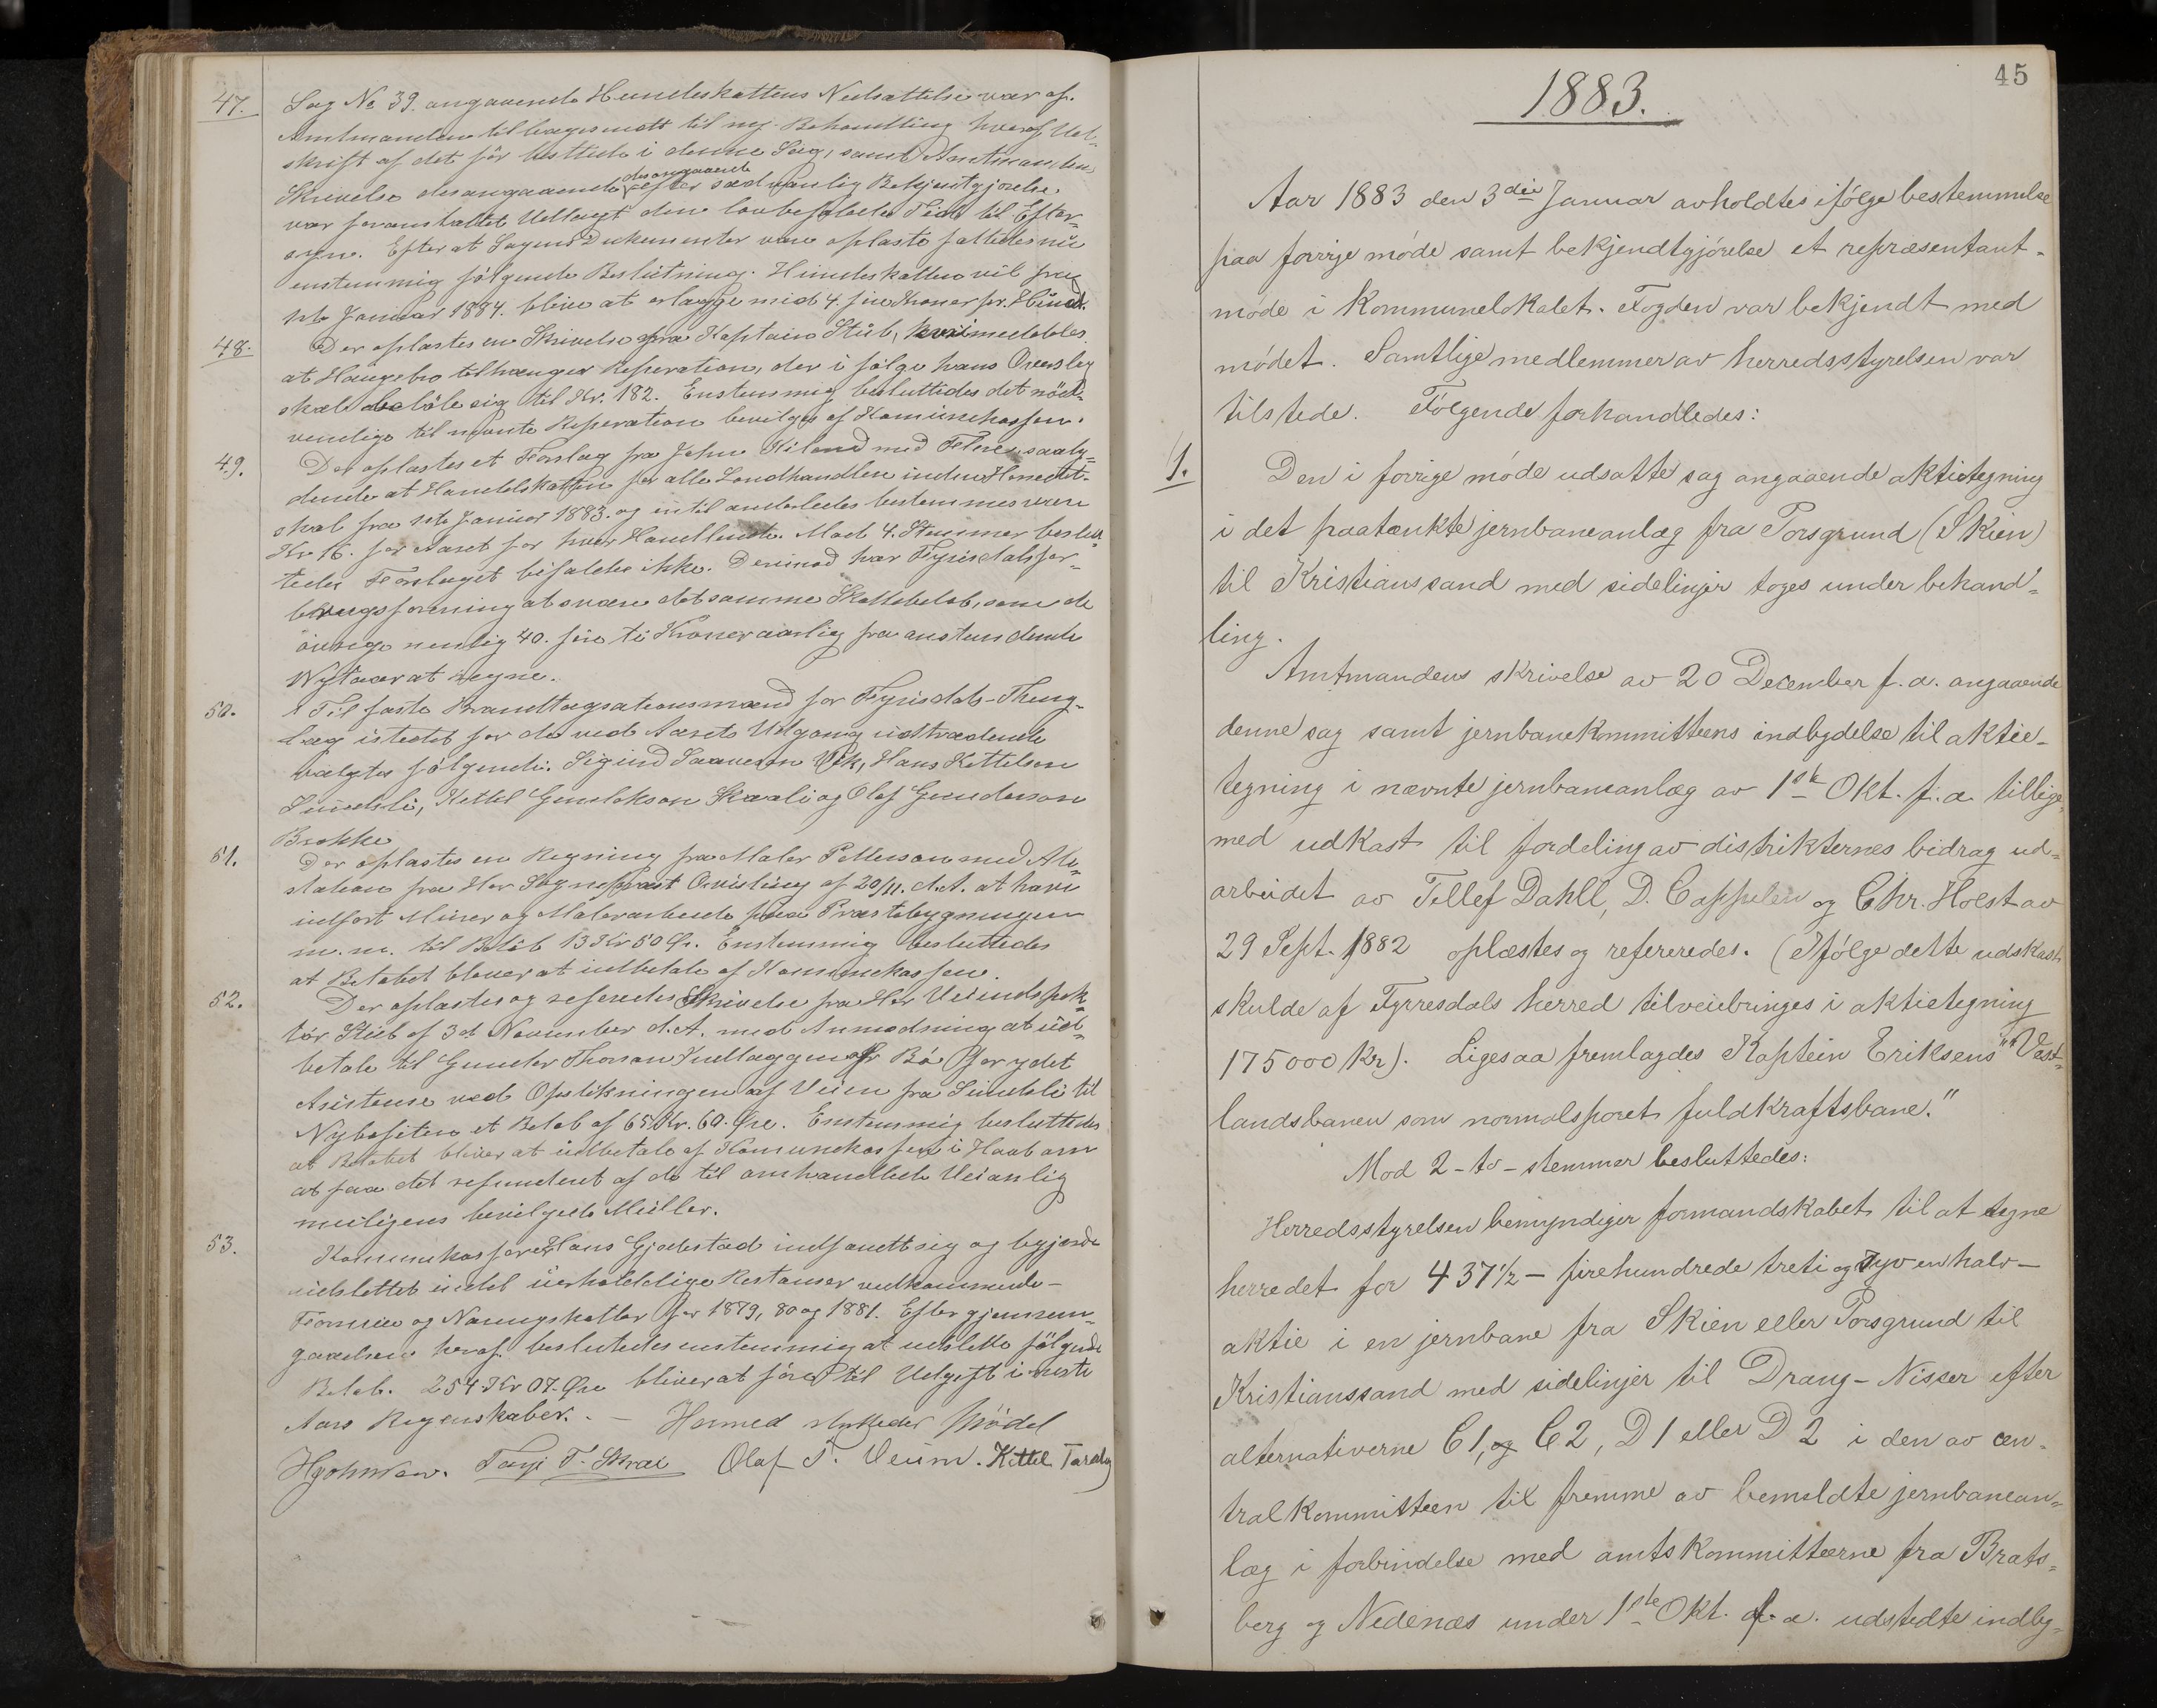 47. Sag No 39. angaaende Hundeskattens Nedsættelse var af
Amtmanden tilbagesendt til ny Behandling hvoraf Ud-
skrift af det før besluttede i denne Sag, samt Amtmandens
desangaaende
Skrivelse desangaaende efter sædvanlig Bekjentgjørelse
var foranstaltet Udlagt den lovbefalede Tid til Efter-
syn. Efter at Sagens Dokumenter var oplæste fattedes nu
enstemmig følgende Beslutning. Hundeskatten vil fra
1ste Januar 1884. blive at erlægge med 4. fire Kroner pr. Hund.
48. Der oplæstes en Skrivelse fra Kaptain Stub, hvori meddeles
at Haugebro tilhænger Reperation, der i følge hans Overslag
skal beløbe sig til Kr. 182. Enstemmig besluttedes det nød-
vendige til nævnte Reperation bevilges af Komunekassen.
49. Der oplæstes et Forslag fra John Kiland med Flere, saaly-
dende at Handelskatten for alle Landhandlere inden Herredet
skal fra 1ste Januar 1883. og indtil anderledes bestemmes være
Kr 16. for Aaret for hver Handlende. Mod 4. Stemmer beslut-
tedes Forslaget bifaldes ikke. Derimod har Fyrisdals for-
brugsforening at svare det samme Skattebeløb, som de
øvrige nemlig 40. fire ti Kroner aarlig fra anstundende
Nytaar at regne.
50. Til faste Brandtagsationsmænd for Fyrisdals-Thing-
lag istedet for de ved Aarets Udgang udtrædende
valgtes følgende: Sigurd Saaveson Vik, Hans Kettelson
Sundsli, Kettel Gunlekson Skaali og Olaf Gunderson
Brokke
51. Der oplæstes en Regning fra Maler Petterson med Ate-
station fra Her Sogneprest Qvisling af 20/11. d.A. at have
udført Murer og Malerarbeide paa Præstebygningen
m.m. til Beløb 13 Kr 50 Ør. Enstemmig besluttedes
at Beløbet bliver at udbetale af Kommunekassen.
52. Der oplæstes og refererdes Skrivelse fra Her Veiindspek-
tør Stub af 3d November d.A. med Anmodning at ud-
betale til Gunder Thorson Indlæggen Bø for ydet
Asistense ved Opstikningen af Veien fra Sundsli til
Nybøfiten et Beløb af 65 Kr. 60. Øre. Enstemmig besluttedes
at Beløbet bliver at udbetale af Komunekassen i Haab om
at faa det refunderet af de til omhandlede Veianlæg
muligens bevilgede Midler.
53. Kommunekasserer Hans Gjødestad indfandt sig og begjærede
udslettet endel uerholdelige Restanser vedkommende-
Formue og Næringsskatter for 1879, 80 og 1881. Efter gjennem-
gaaelsen heraf besluttedes enstemmig at udslette følgende
Beløb. 254 Kr 07. Øre bliver at føre til Udgift i neste
Aars Regenskaber. - Hermed sluttedes Mødet
HJohnsen. Tarje T. Skræ Olaf T. Veum. Kittel Taraldsen
45
1883.
Aar 1883 den 3die Januar avholdtes ifølge bestemmelse
paa forrige møde samt bekjendtgjørelse et repræsentant-
møde i Kommunelokalet. Fogden var bekjendt med
mødet. Samtlige medlemmer av herredsstyrelsen var
tilstede. Følgende forhandledes:
1. Den i forrige møde udsatte sag angaaende aktietegning
i det paatænkte jernbaneanlæg fra Porsgrund (Skien)
til Kristianssand med sidelinjer toges under behand-
ling.
Amtmandens skrivelse av 20 December f.a. angaaende
denne sag samt jernbanekommitteens indbydelse til aktie-
tegning i nævnte jernbaneanlæg av 1ste Okt. f.a. tillige-
med udkast til fordeling av distrikternes bidrag ud-
arbeidet av Tellef Dahll, D. Cappelen og Chr. Holst av
29 Sept. 1882 oplæstes og refereredes. (Ifølge dette udskast
skulde af Fyrresdals herred tilveiebringes i aktietegning
175000 Kr). Ligesaa fremlagdes Kaptein Eriksens "Vest-
landsbanen som normalsporet fuldkraftsbane."
Mod 2 - to - stemmer besluttedes:
Herredsstyrelsen bemyndiger formandskabet til at tegne
herredet for 437½ - firehundrede treti og syv en halv -
aktie i en jernbane fra Skien eller Porsgrund til
Kristianssand med sidelinjer til Drang - Nisser efter
alternativerne C1, og C2, D1 eller D2 i den av cen-
tralkommitteen til fremme av bemeldte jernbanean-
læg i forbindelse med amtskommitteerne fra Brats-
berg og Nedenæs under 1ste Okt. f.a. udstedte indby-